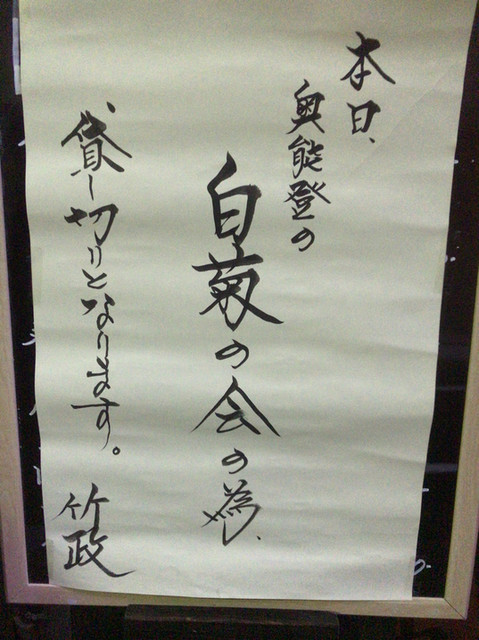 本日、
奥能登の
白菊の会の為、
貸し切りとなります。
竹政